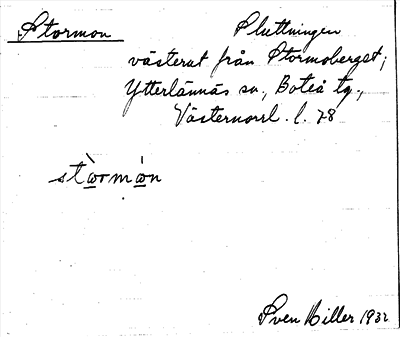 Stormon Sluttningen
västerut från Stormoberget;
Ytterlännäs sn., Boteå tg.,
Västernorrl. l. 28
stòrmón
Sven Hiller 1932